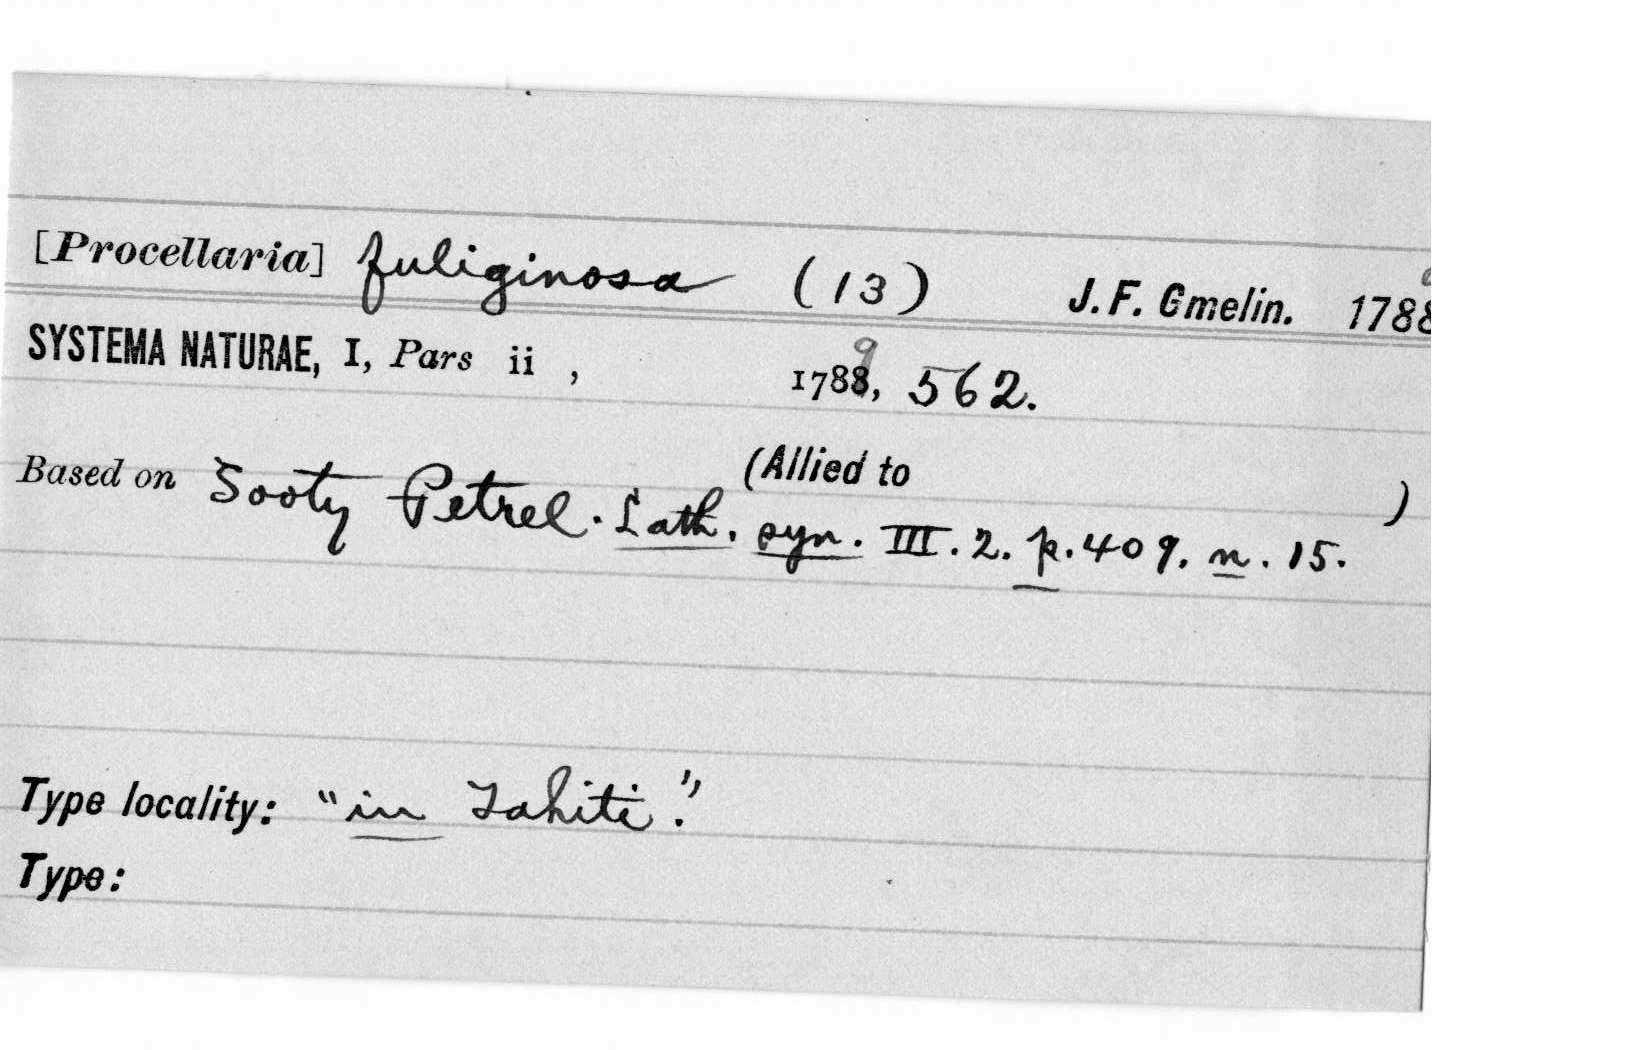 [Procellaria] fuliginosa (13) J. F. Gmelin. 1788
SYSTEMA NATURAE, I, Pars ii , 1788, 9 562.
Based on Sooty Petrel. Lath. syn. III. 2. p. 409. n. 15. (Allied to )
Type locality: "in Tahiti."
Type: